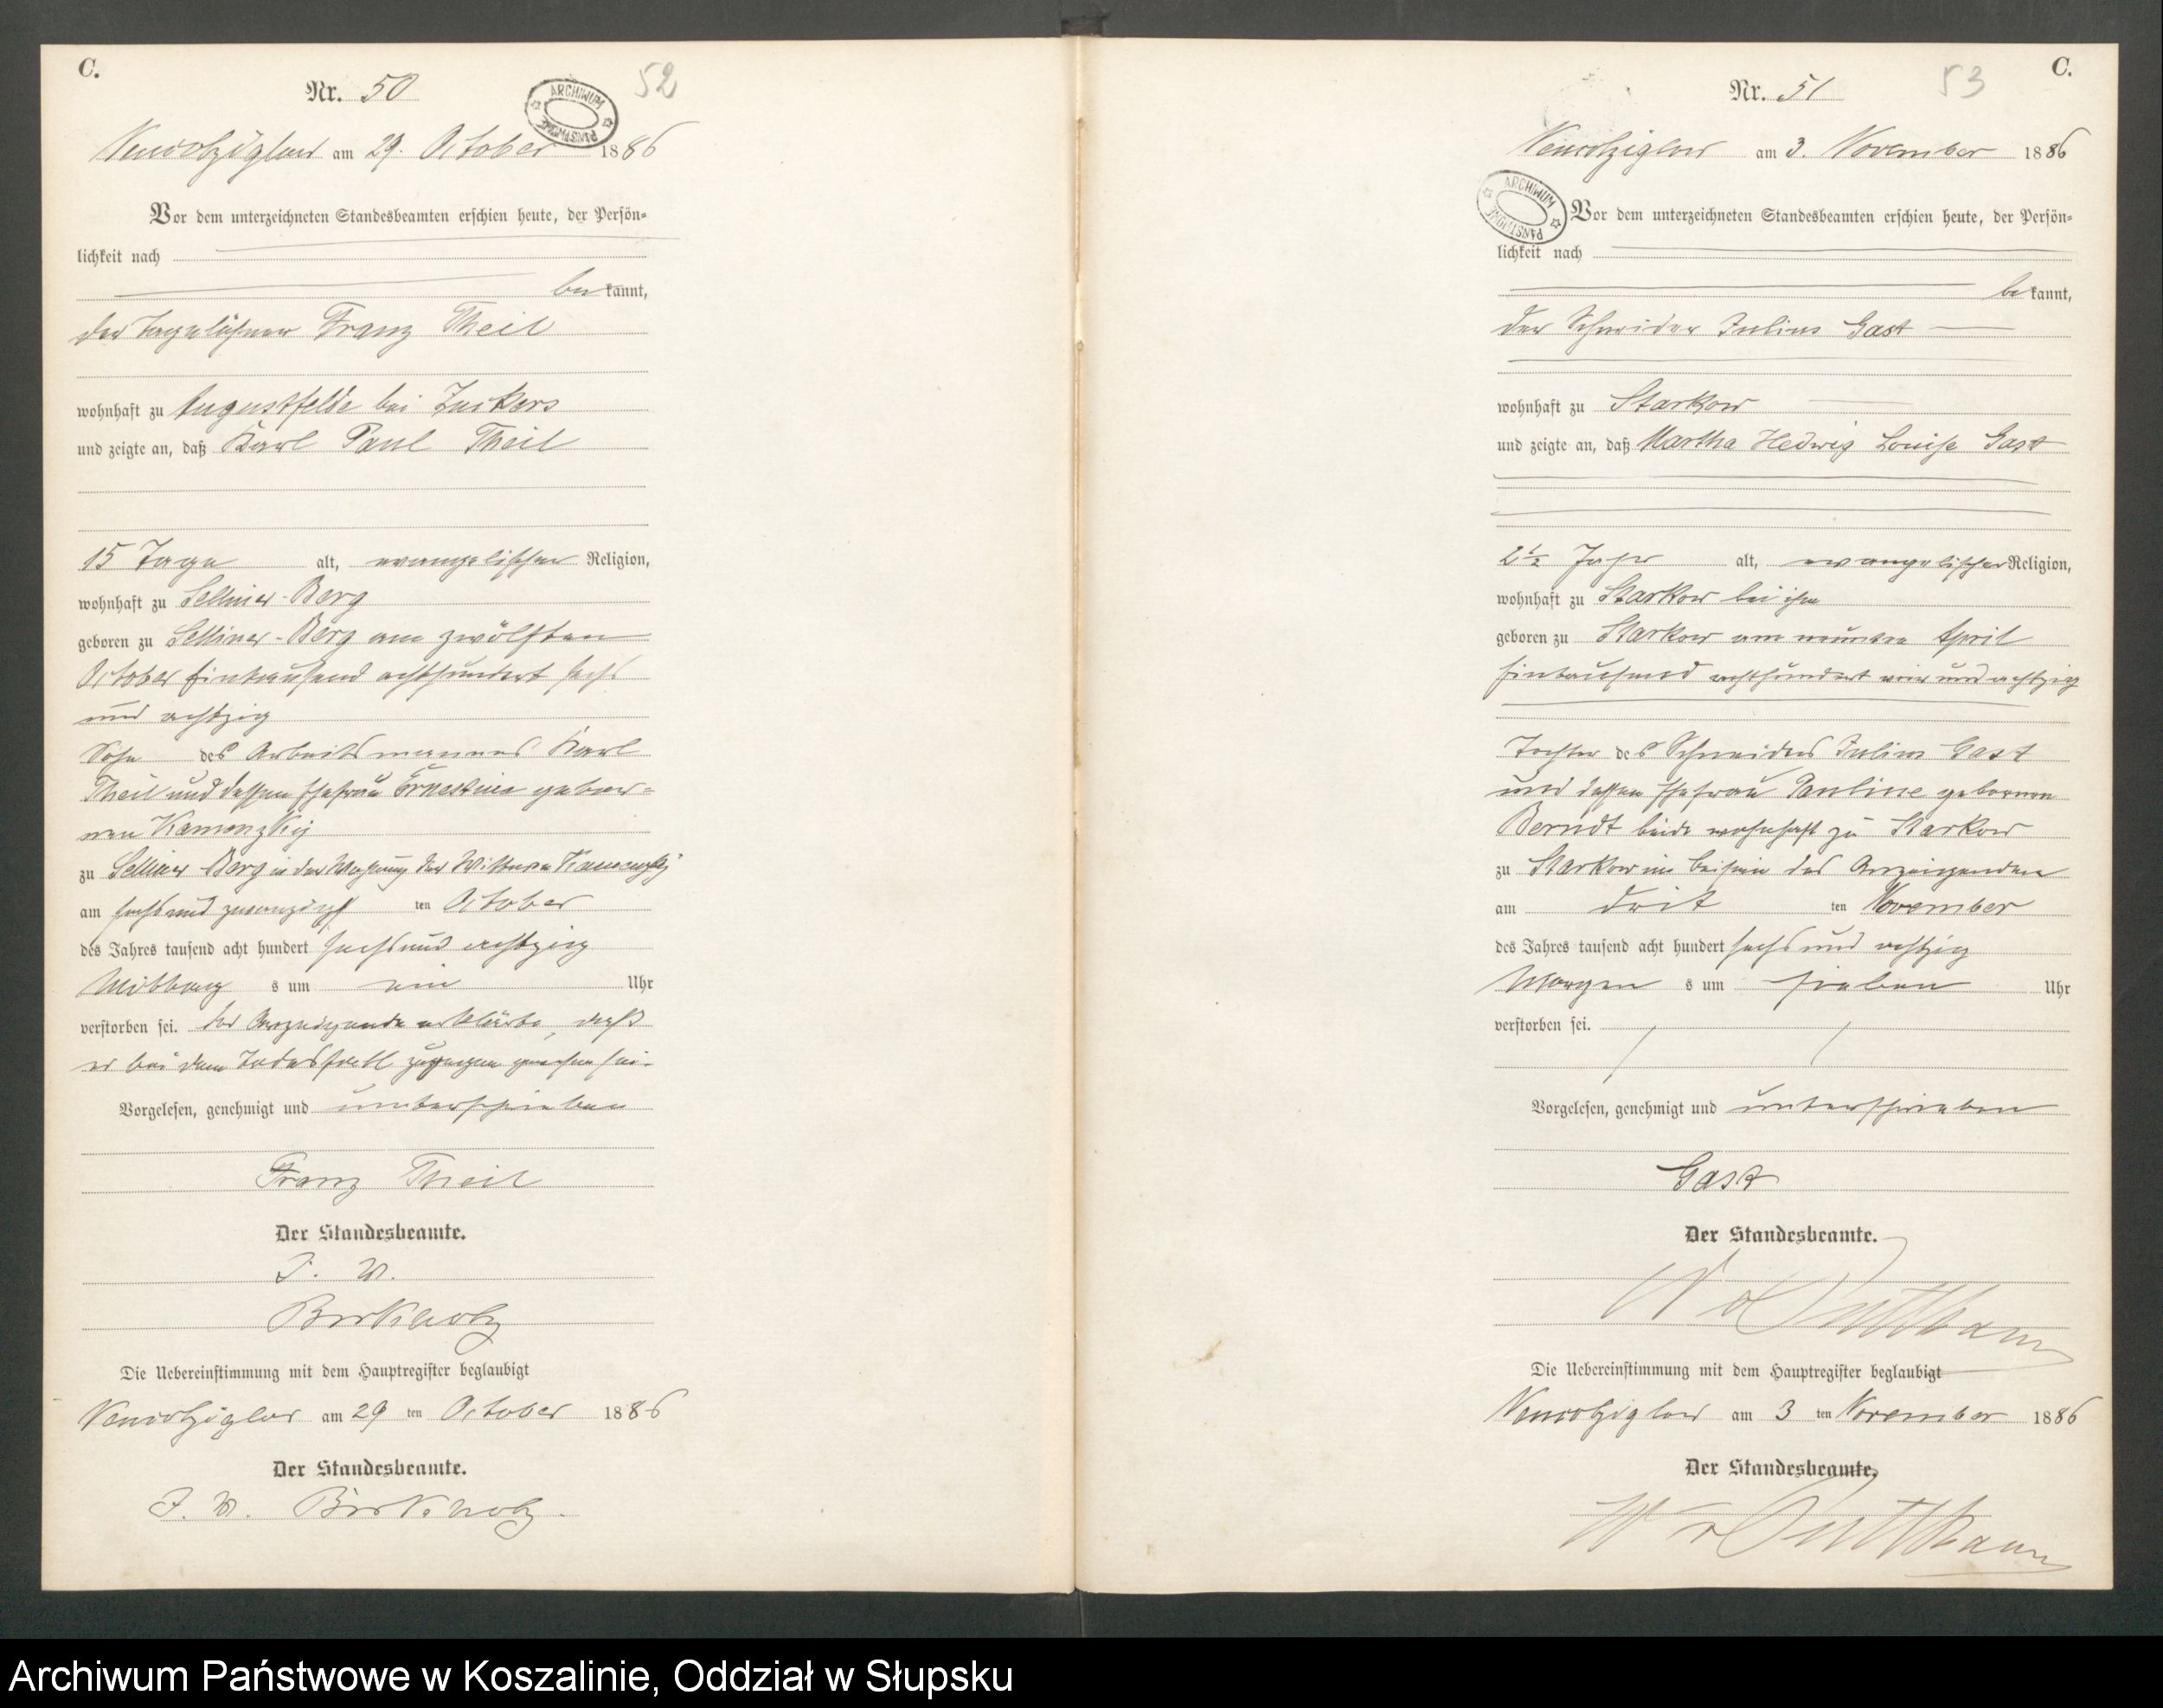 C.
Nr. 50
52
ARCHIWUM PAŃSTWOWE
Neuwolziglow am 29. October 1886
Vor dem unterzeichneten Standesbeamten erschien heute, der Persön=
lichkeit nach
be kannt,
der Tagelöhner Franz Theil
wohnhaft zu Augustfelde bei Zuckers
und zeigte an, daß Karl Paul Theil
15 Tage alt, evangelischer Religion,
wohnhaft zu Selliner-Berg
geboren zu Selliner-Berg am zwölften
October Eintausend achthundert sechs
und achtzig
Sohn des Arbeitsmannes Karl
Theil und dessen Ehefrau Ernestine gebor=
nen Kamenzky
zu Selliner Berg in der Wohnung der Wittwe
am sechs und zwanzigst ten October
des Jahres tausend acht hundert sechs und achtzig
Mittag s um ein Uhr
verstorben sei. Der Anzeigende erklärte, daß
er bei dem Todesfall zugegen gewesen sei.
Vorgelesen, genehmigt und unterschrieben
Franz Theil
Der Standesbeamte.
I. V.
Birkholz
Die Uebereinstimmung mit dem Hauptregister beglaubigt
Neuwolziglow am 29 ten October 1886
Der Standesbeamte.
I. V. Birkholz.
C.
Nr. 51
53
ARCHIWUM PAŃSTWOWE
Neuwolziglow am 3. November 1886
Vor dem unterzeichneten Standesbeamten erschien heute, der Persön=
lichkeit nach
be kannt,
der Schneider Julius Gast
wohnhaft zu Starkow
und zeigte an, daß Martha Hedwig Louise Gast
2½ Jahr alt, evangelischer Religion,
wohnhaft zu Starkow bei ihm
geboren zu Starkow am neunten April
Eintausend achthundert vier und achtzig
Tochter des Schneiders Julius Gast
und dessen Ehefrau Pauline gebornen
Berndt beide wohnhaft zu Starkow
zu Starkow im Beisein des Anzeigenden
am drit ten November
des Jahres tausend acht hundert sechs und achtzig
Morgen s um sieben Uhr
verstorben sei.
Vorgelesen, genehmigt und unterschrieben
Gast
Der Standesbeamte.
W v Puttkamer
Die Uebereinstimmung mit dem Hauptregister beglaubigt
Neuwolziglow am 3 ten November 1886
Der Standesbeamte.
W v Puttkamer
Archiwum Państwowe w Koszalinie, Oddział w Słupsku